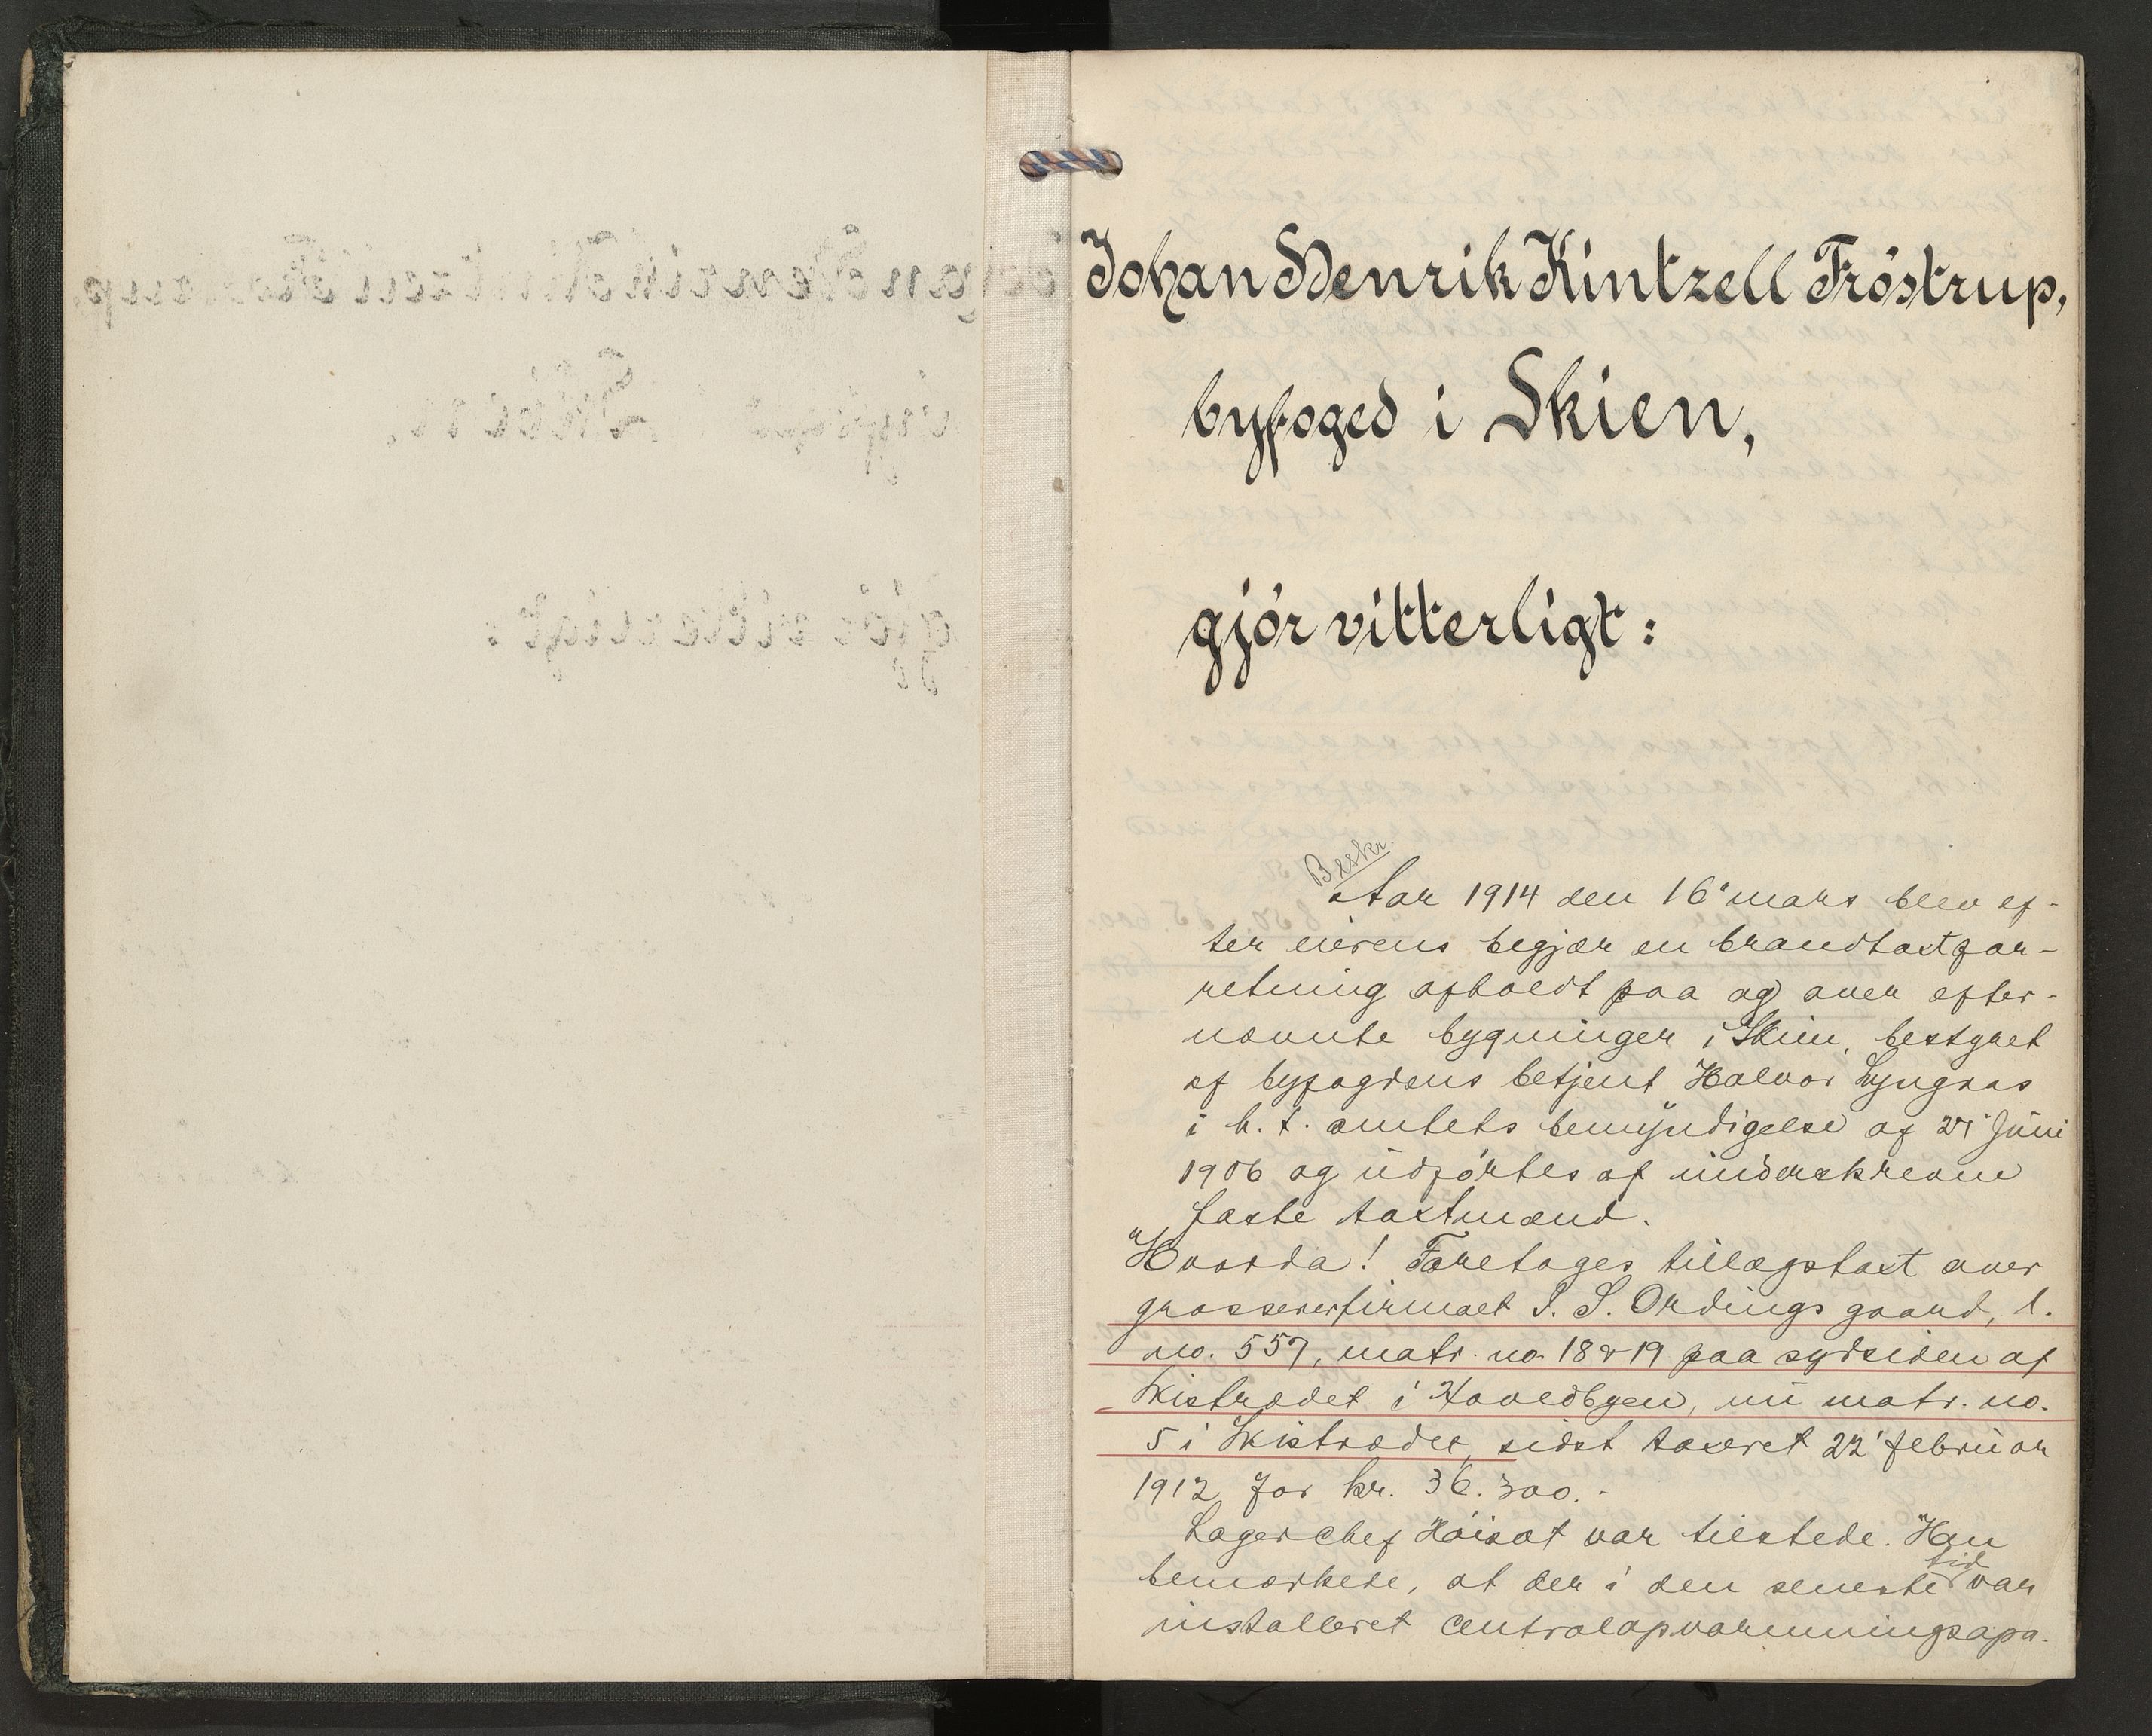 Johan Henrik Kintzell Fröstrup,
byfoged i Skien,
gjör vitterligt:
Beskr.
Aar 1914 den 16' mars blev ef-
ter eierens begjær en brandtaxtfor-
retning afholdt paa og over efter-
nævnte bygninger i Skien, bestyret
af byfogdens betjent Halvor Lyngaas
i h. t. amtets bemyndigelse af 21' juni
1906 og udførtes af underskrevne
faste taxtmænd.
"Hvorda! Foretages tillægstaxt over
grossererfirmaet S. S. Ordings gaard, l.
no. 557, matr. no. 18 & 19 paa sydsiden af
Skistrædet i Hovedbyen, nu matr. no.
5 i Skistrædet, sidst taxeret 22' februar
1912 for kr. 36.300.-
Lagerchef Höisæt var tilstede. Han
bemærkede, at der i den seneste tid var
installeret centralopvarmningsapa-